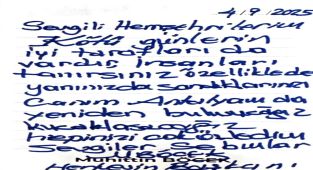 4/9/2025
Sevgili Hemşehrilerim
Kötü günlerin
iyi tarafları da
vardır insanları
tanırsınız özelliklede
yanınızda sandıklarınızı
Canım Antalyam da
yeniden buluşacağız
kucaklaşacağız
hepinizi çok özledim
Sevgiler Selamlar
Muhittin BÖCEK
Herkesin Başkanı